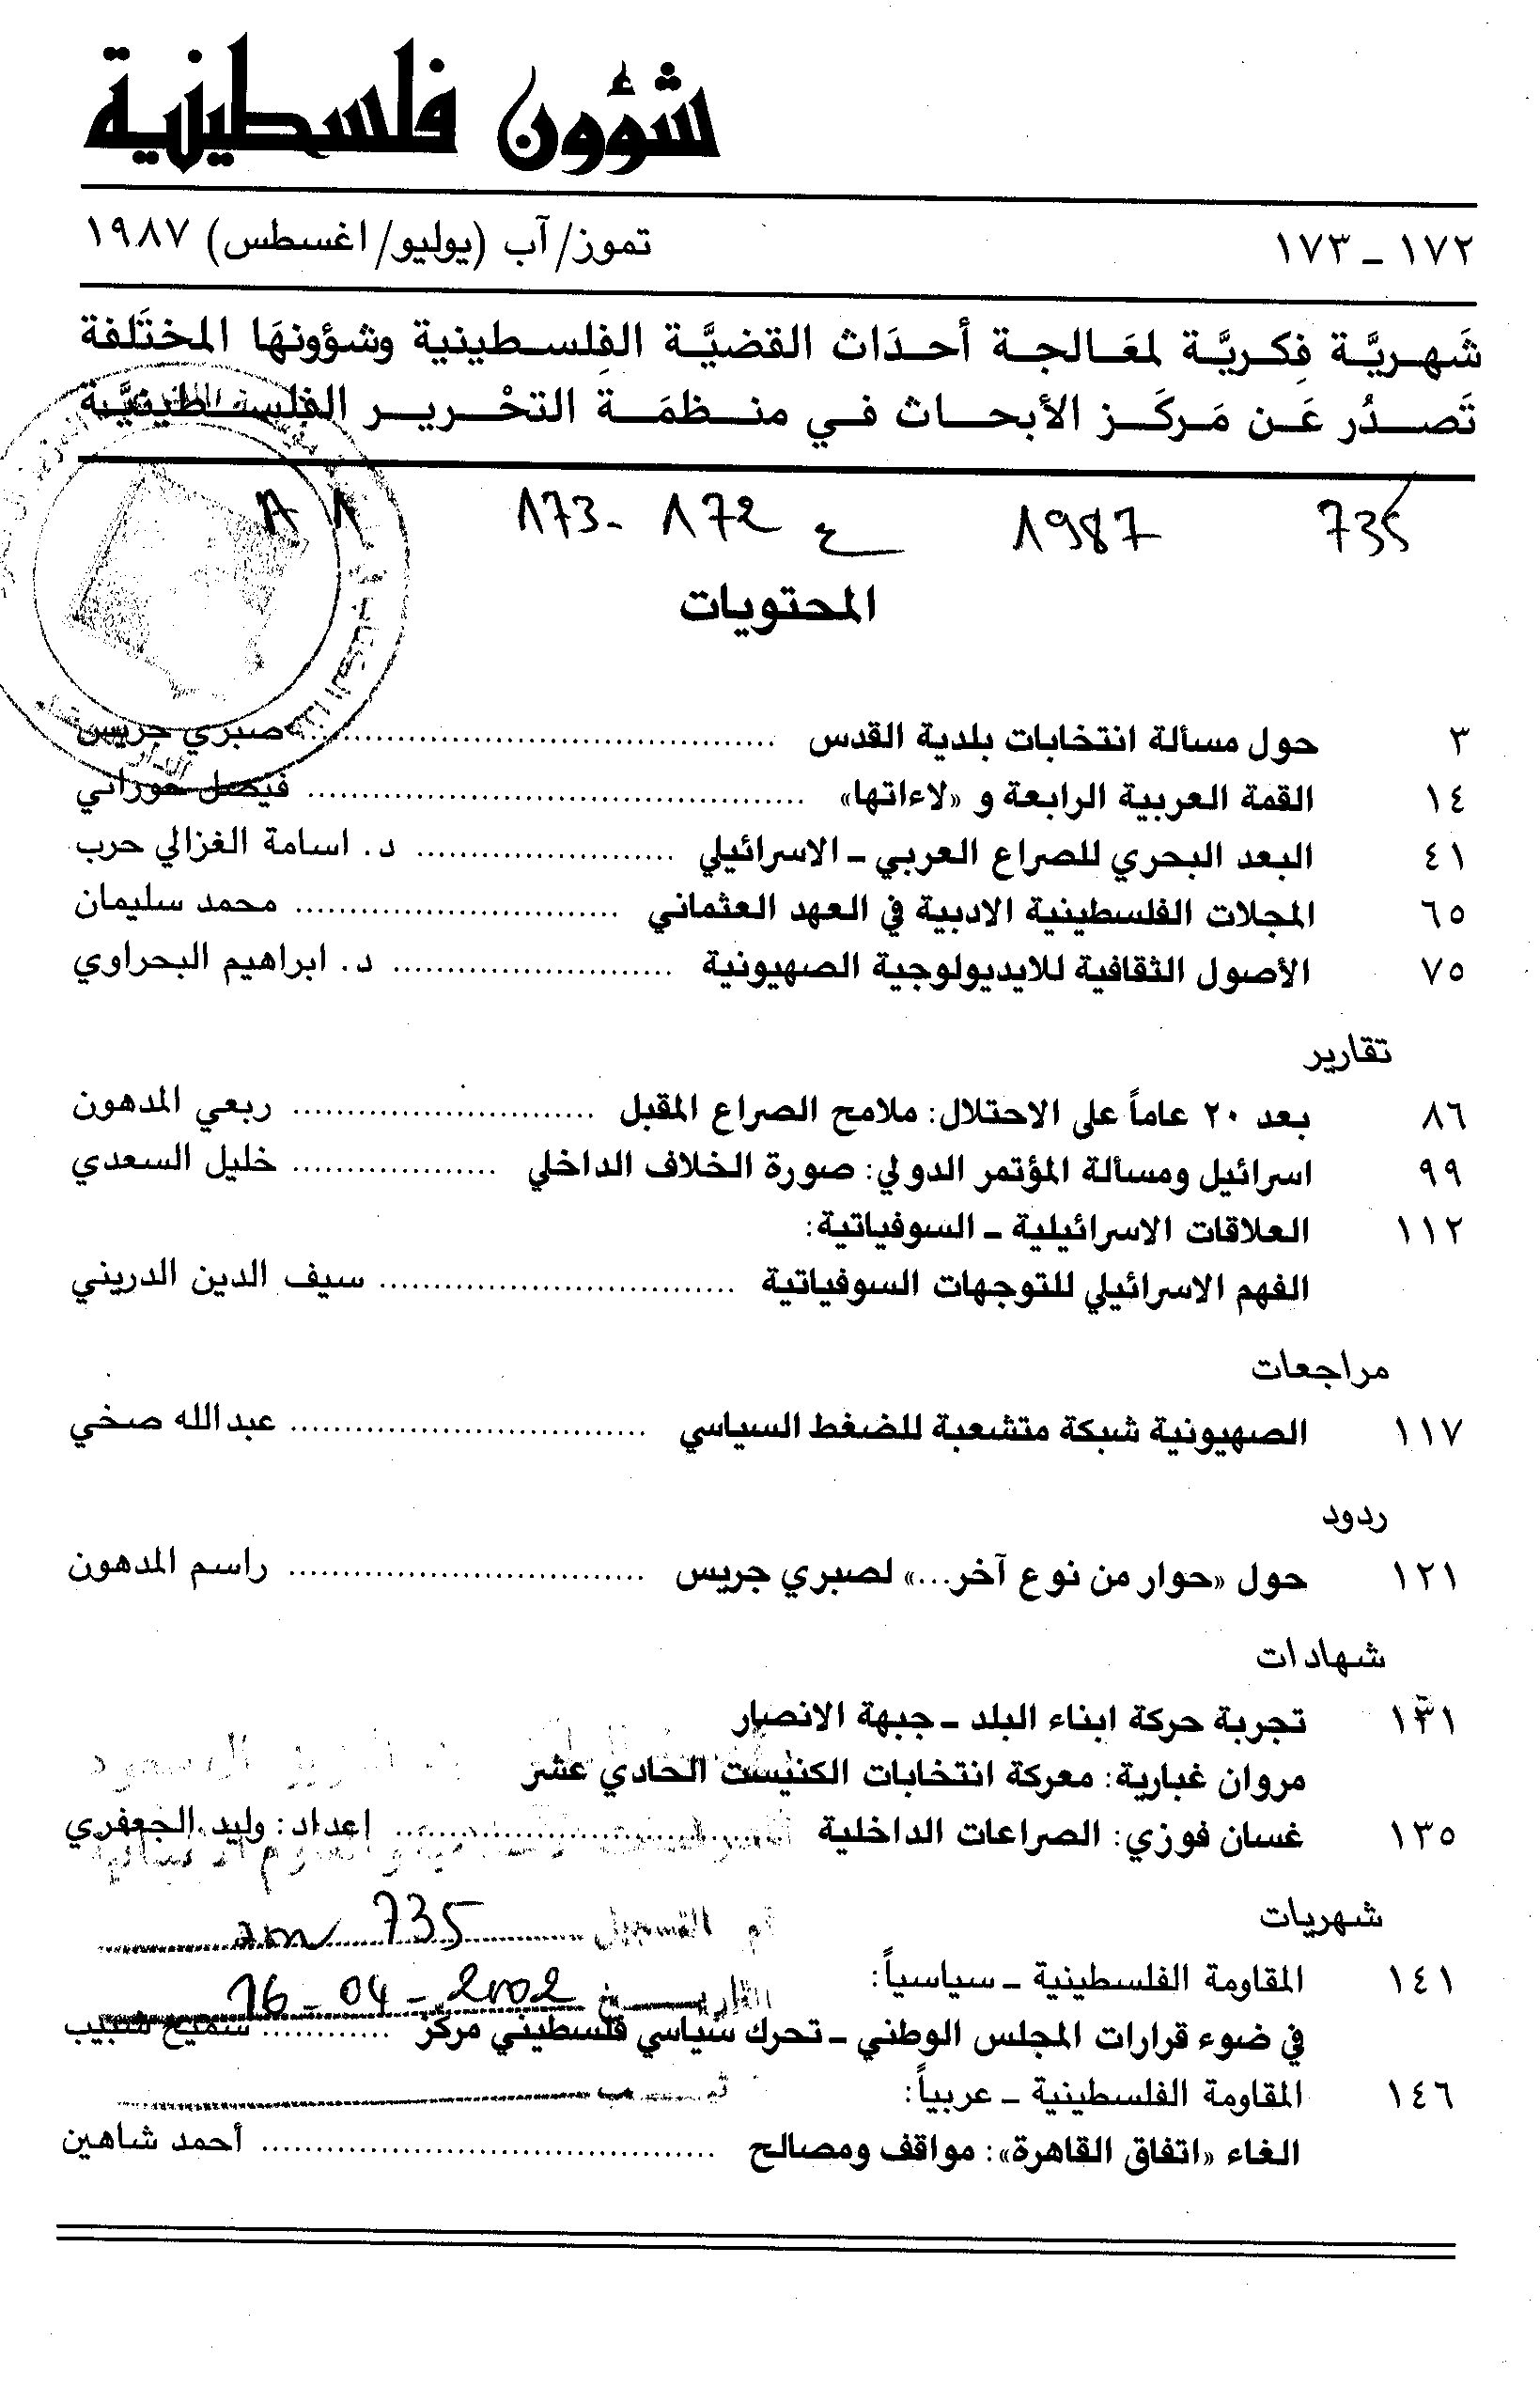 شؤون فلسطينية
١٧٢ – ١٧٣ تموز/ آب (يوليو/ اغسطس) ١٩٨٧
شَهريَّة فِكريَّة لمعَالجة أحدَاث القضيَّة الفِلسطينية وشؤونهَا المختَلفة
تَصدُر عَن مَركَز الأبحاث في منظمَة التحْرير الفلسطينيَّة
735 1987 ع 172 -173
المحتويات
٣ حول مسألة انتخابات بلدية القدس ........ صبري جريس
١٤ القمة العربية الرابعة و «لاءاتها» ........ فيصل حوراني
٤١ البعد البحري للصراع العربي – الاسرائيلي ........ د. اسامة الغزالي حرب
٦٥ المجلات الفلسطينية الادبية في العهد العثماني ........ محمد سليمان
٧٥ الأصول الثقافية للايديولوجية الصهيونية ........ د. ابراهيم البحراوي
تقارير
٨٦ بعد ٢٠ عاماً على الاحتلال: ملامح الصراع المقبل ........ ربعي المدهون
٩٩ اسرائيل ومسألة المؤتمر الدولي: صورة الخلاف الداخلي ........ خليل السعدي
١١٢ العلاقات الاسرائيلية – السوفياتية:
الفهم الاسرائيلي للتوجهات السوفياتية ........ سيف الدين الدريني
مراجعات
١١٧ الصهيونية شبكة متشعبة للضغط السياسي ........ عبدالله صخي
ردود
١٢١ حول «حوار من نوع آخر...» لصبري جريس ........ راسم المدهون
شهادات
١٣١ تجربة حركة ابناء البلد – جبهة الانصار
مروان غبارية: معركة انتخابات الكنيست الحادي عشر
١٣٥ غسان فوزي: الصراعات الداخلية ........ إعداد: وليد الجعفري
شهريات
رقم التسجيل 735
١٤١ المقاومة الفلسطينية – سياسياً:
التاريخ 16-04-2002
في ضوء قرارات المجلس الوطني – تحرك سياسي فلسطيني مركز ........ سميح شبيب
١٤٦ المقاومة الفلسطينية – عربياً:
الغاء «اتفاق القاهرة»: مواقف ومصالح ........ أحمد شاهين